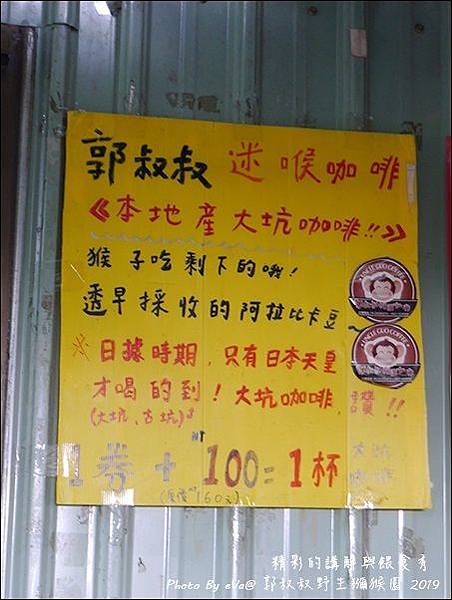 郭叔叔 迷喉咖啡
《本地產大坑咖啡!!》
猴子吃剩下的哦!
透早採收的阿拉比卡豆~
UNCLE GUO COFFEE
UNCLE GUO COFFEE
※日據時期,只有日本天皇
才喝的到!大坑咖啡,讚!!
(大坑、古坑)
NT
1券+100=1杯
大坑
咖啡
(原價160元)
精彩的講解與餵食秀
Photo By eVa@ 郭叔叔野生獼猴園 2019